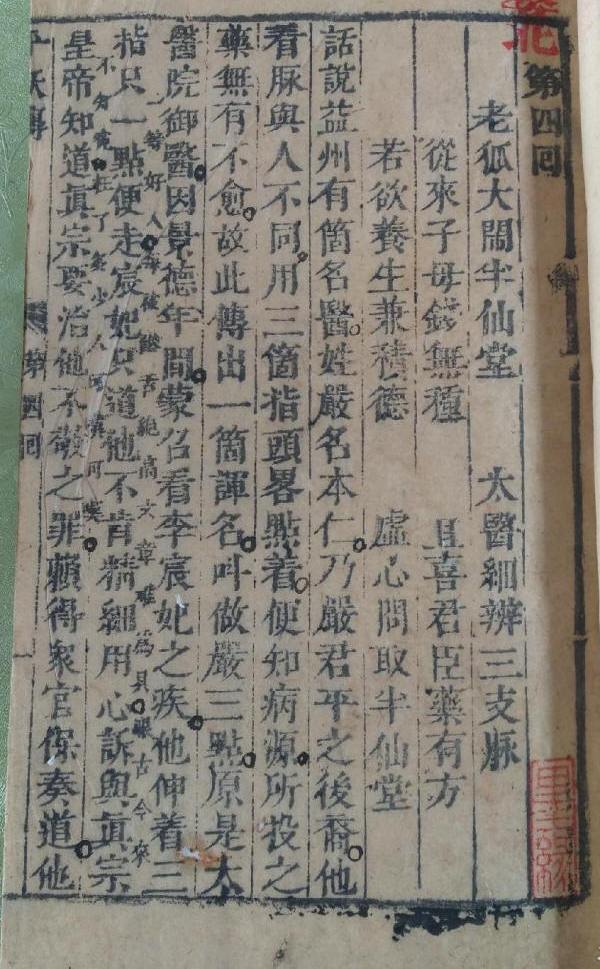 第四回
老狐大鬧半仙堂　太醫細辨三支脉
從來子母錢無種　且喜君臣藥有方
若欲養生兼積德　虛心問取半仙堂
話說益州有箇名醫。姓嚴名本仁。乃嚴君平之後裔。他
看脉與人不同。用三箇指頭畧點着。便知病源。所投之
藥無有不愈。故此傳出一箇諢名。叫做嚴三點。原是太
醫院御醫。因景德年間。蒙召看李宸妃之疾。他伸着三
一等好人。每被 絶高文章難爲具眼。古今來
指只一點便走宸妃只道他不肯精細用心訴與眞宗
不知寃枉了多少人可 可
皇帝知道眞宗要治他不敬之罪。賴得衆官保奏。道他
平妖傳 第四回